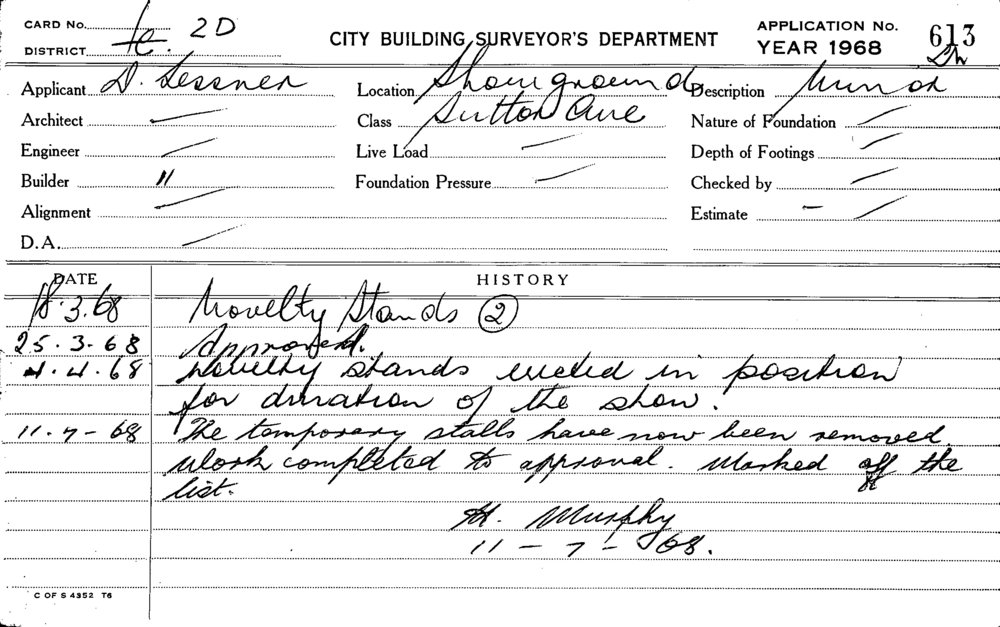 CARD No. 2D
DISTRICT
CITY BUILDING SURVEYOR'S DEPARTMENT
APPLICATION No. 613
YEAR 1968
Applicant D. Lessner
Location Showgrounds
Description Minor
Architect
Class Sutton Ave
Nature of Foundation
Engineer
Live Load
Depth of Footings
Builder "
Foundation Pressure
Checked by
Alignment
Estimate -
D.A.
DATE HISTORY
18.3.68 Novelty Stands 2
25.3.68 Approved.
4.4.68 Novelty stands erected in position
for duration of the show.
11-7-68 The temporary stalls have now been removed.
Work completed to approval. Marked off the
list.
H. Murphy
11-7-68.
C OF S 4352 T6